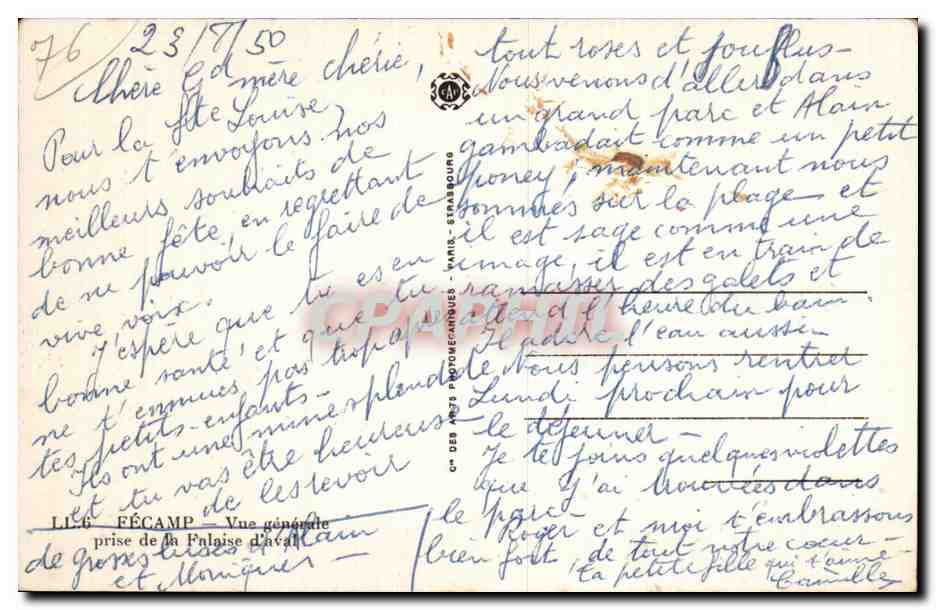 76
23/8/50
Chère Gd mère chérie,
Pour la Ste Louise,
nous t'envoyons nos
meilleurs souhaits de
bonne fête, en regrettant
de ne pouvoir le faire de
vive voix.
J'espère que tu es en
bonne santé et que tu
ne t'ennuies pas trop après
tes petits-enfants-
Ils ont une mine splendide
et tu vas être heureuse
de les revoir
LL 6 FÉCAMP — Vue générale
prise de la Falaise d'aval
de grosses bises d'Alain
et Monique —
Cie DES ARTS PHOTOMÉCANIQUES - PARIS - STRASBOURG
CAP
CPAPHIL
tout roses et joufflus-
Nous venons d'aller dans
un grand parc et Alain
gambadait comme un petit
poney, maintenant nous
sommes sur la plage et
il est sage comme une
image, il est en train de
ramasser des galets et
attend l'heure du bain.
Il adore l'eau aussi-
Nous pensons rentrer
Lundi prochain pour
le déjeuner —
Je te joins quelques violettes
que j'ai trouvées dans
le parc-
Roger et moi t'embrassons
bien fort, de tout notre coeur-
Ta petite fille qui t'aime-
Camille